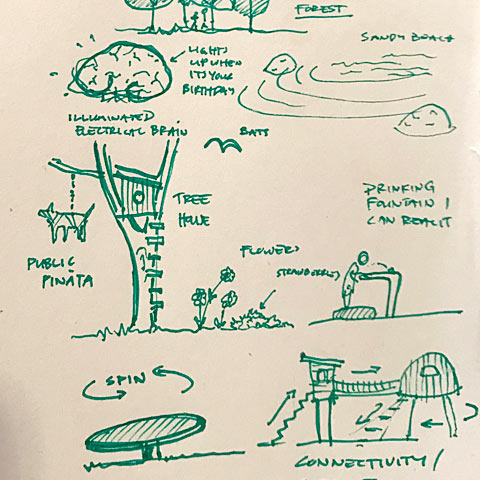 FOREST
SANDY BEACH
LIGHTS
UP WHEN
IT'S YOUR
BIRTHDAY
ILLUMINATED
ELECTRICAL BRAIN
BATS
TREE
HOUSE
DRINKING
FOUNTAIN I
CAN REACH
PUBLIC
PIÑATA
FLOWERS
STRAWBERRIES
SPIN
CONNECTIVITY/